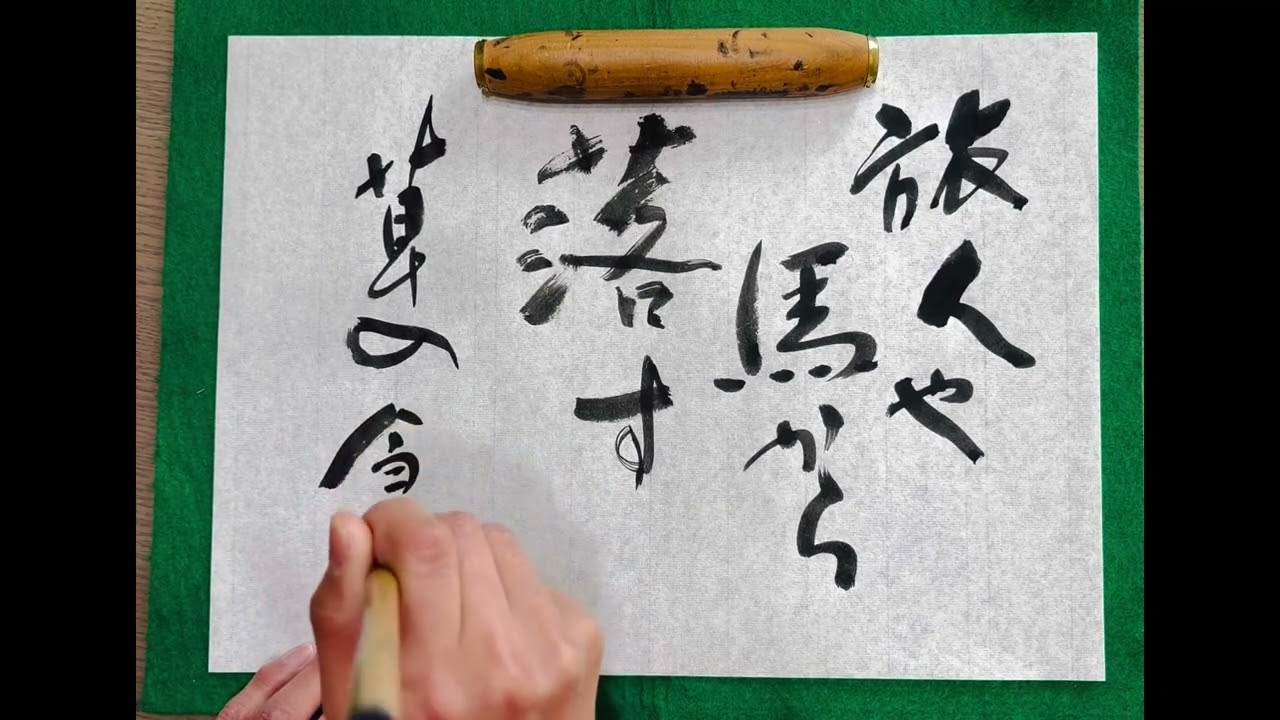 旅人や
馬から
落す
草の